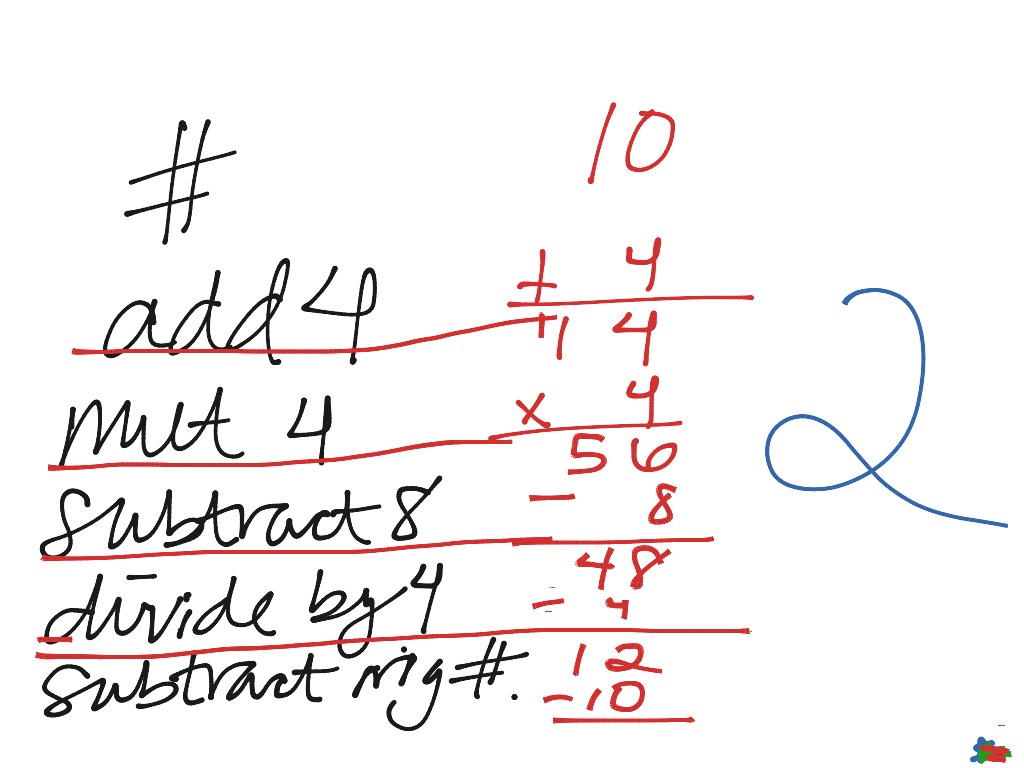 # 10
add 4 + 4
14
mult 4 x 4
56
subtract 8 - 8
48
divide by 4 ÷ 4
12
subtract orig #. - 10
2